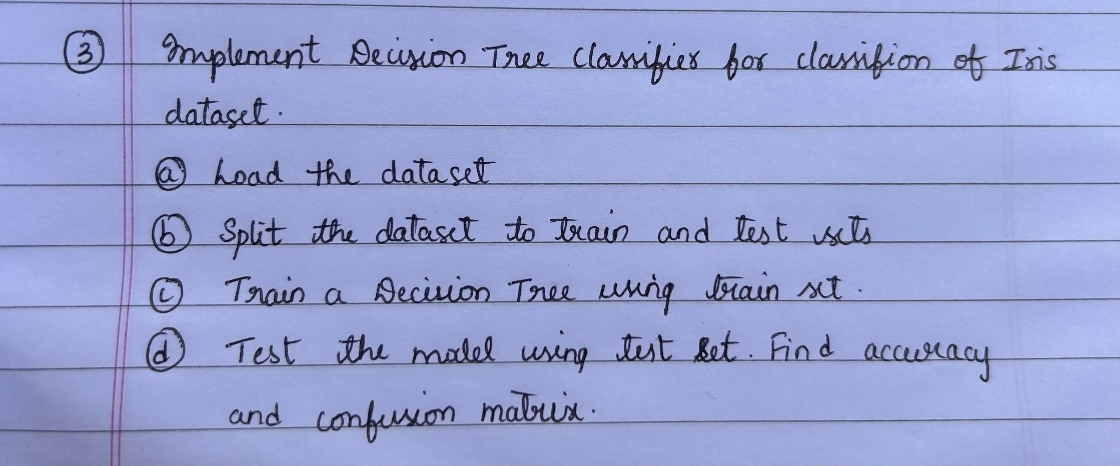 ③ Implement Decision Tree Classifier for classifion of Iris
dataset.
ⓐ Load the dataset
ⓑ Split the dataset to train and test sets
ⓒ Train a Decision Tree using train set.
ⓓ Test the model using test set. Find accuracy
and confusion matrix.